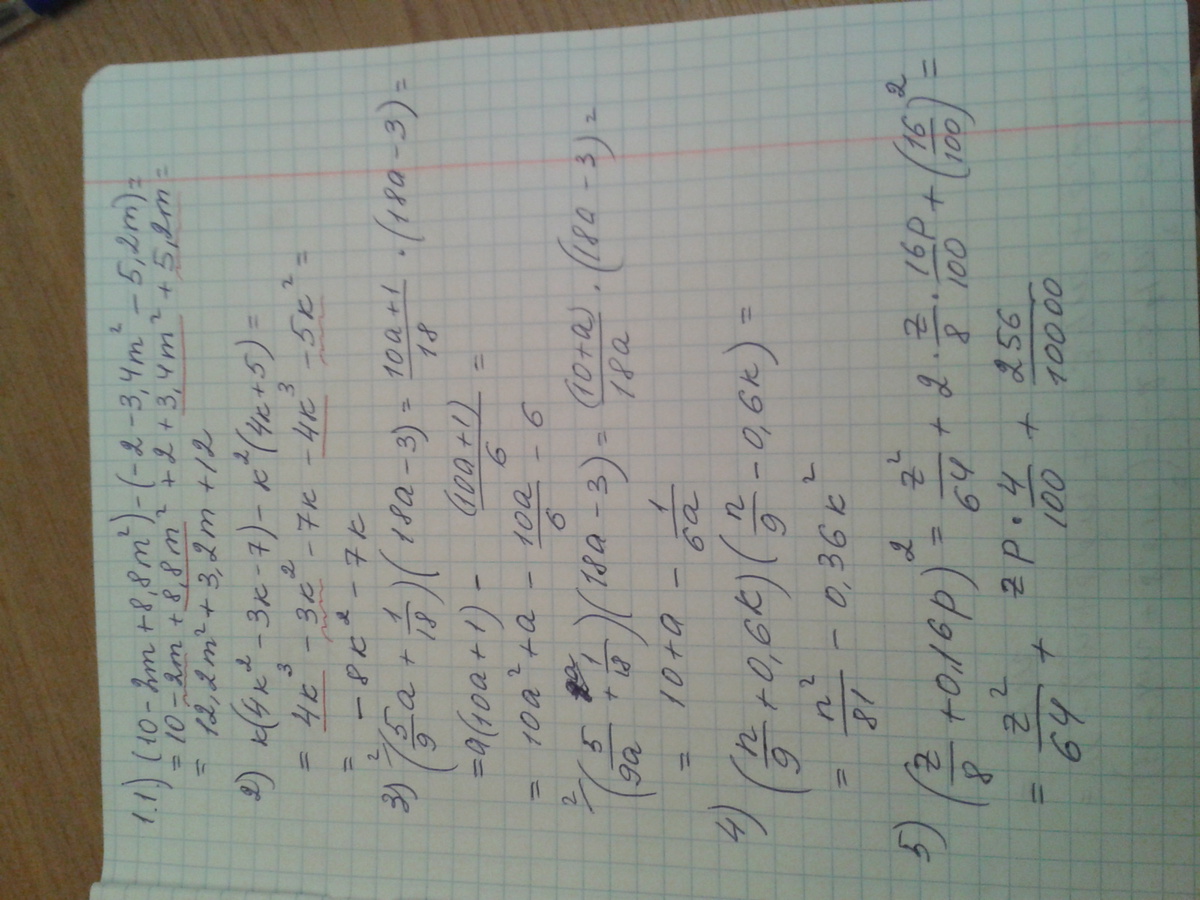 1.1) (10 - 2m + 8,8m²) - (-2 - 3,4m² - 5,2m) =
= 10 - 2m + 8,8m² + 2 + 3,4m² + 5,2m =
= 12,2m² + 3,2m + 12
2) к(4к² - 3к - 7) - к²(4к + 5) =
= 4к³ - 3к² - 7к - 4к³ - 5к² =
= - 8к² - 7к
3) (5/9 a + 1/18)(18a - 3) = (10a + 1)/18 · (18a - 3) =
= a(10a + 1) - (10a + 1)/6 =
= 10a² + a - 10a/6 - 6/6
(5/9a + 1/18)(18a - 3) = (10 + a)/18a · (18a - 3) =
= 10 + a - 1/6a
4) (n/9 + 0,6к)(n/9 - 0,6к) =
= n²/81 - 0,36к²
5) (z/8 + 0,16p)² = z²/64 + 2 · z/8 · 16p/100 + (16/100)² =
= z²/64 + zp · 4/100 + 256/10000